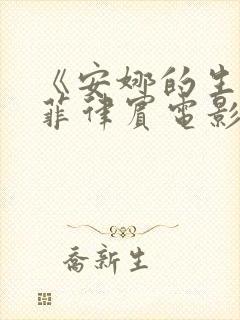 《安娜的生
菲律宾电影
乔新生